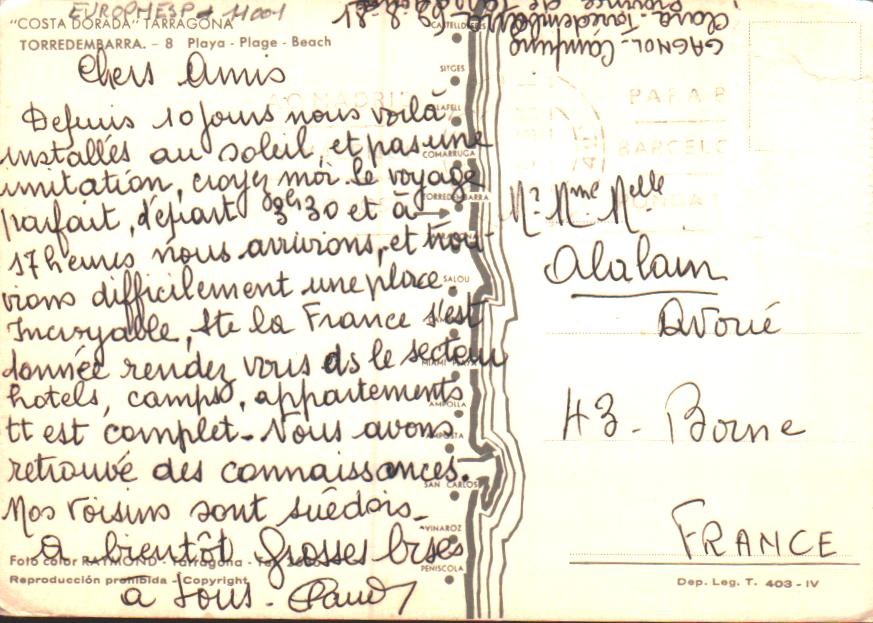 EUROPMESP 11001
"COSTA DORADA" TARRAGONA
TORREDEMBARRA. - 8 Playa - Plage - Beach
Chers Amis
Depuis 10 jours nous voilà
installés au soleil, et pas une
imitation, croyez moi. le voyage
parfait, départ 3h30 et à
17 heures nous arrivions, et trou-
vions difficilement une place.
Incroyable, tte la France s'est
donnée rendez vous ds le secteur
hotels, camps, appartements
tt est complet. Nous avons
retrouvé des connaissances.
Nos voisins sont suédois.
A bientôt Grosses bises
à tous.
Foto color RAYMOND - Tarragona
Reproducción prohibida - Copyright
CASTELLDEFELS
SITGES
CALAFELL
COMARRUGA
TORREDEMBARRA
SALOU
MIAMI PLAYA
AMPOLLA
AMPOSTA
SAN CARLOS
VINAROZ
PEÑISCOLA
GAGNOL - Camping
Clara - Torredembarra
8-81
PARA
BARCELO
Mr Mme Melle
Alalain
Avoué
43 - Borne
FRANCE
Dep. Leg. T. 403 - IV